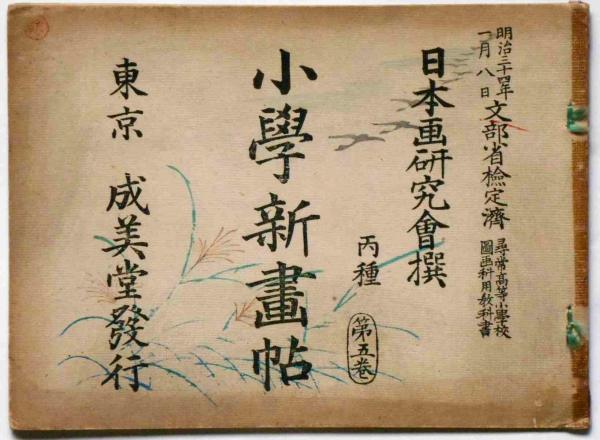 明治三十四年
一月八日
文部省檢定濟
尋常高等小學校
圖画科用教科書
日本画研究會撰
小學新畫帖
丙種
第五卷
東京 成美堂發行